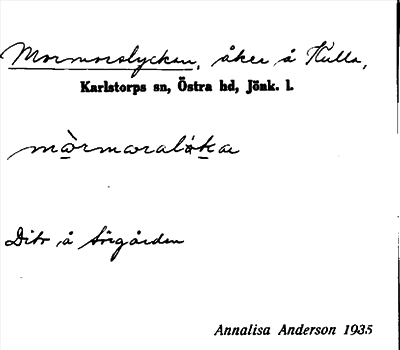 Mormorslyckan, åker å Kulla,
Karlstorps sn, Östra hd, Jönk. l.
Dito å Sörgården
Annalisa Anderson 1935